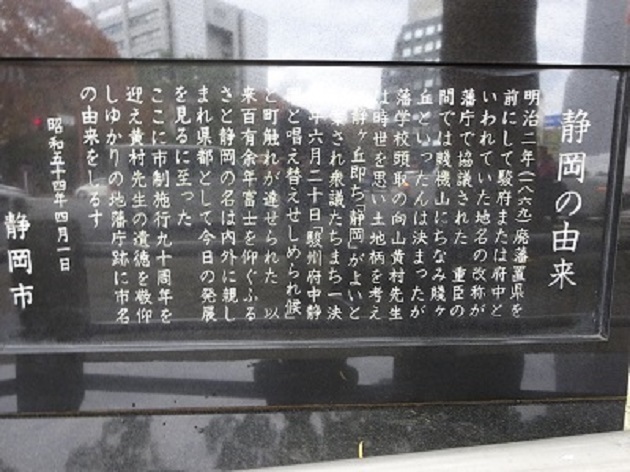 静岡の由来
明治二年(一八六九)廃藩置県を
前にして駿府または府中と
いわれていた地名の改称が
藩庁で協議された 重臣の
間では賤機山にちなみ賤ヶ
丘といったんは決まったが
藩学校頭取の向山黄村先生
は時世を思い土地柄を考え
静ヶ丘即ち「静岡」がよいと
され衆議たちまち一決
年六月二十日「駿州府中静
と唱え替えせしめられ候」
と町触れが達せられた 以
来百有余年富士を仰ぐふる
さと静岡の名は内外に親し
まれ県都として今日の発展
を見るに至った
ここに市制施行九十周年を
迎え黄村先生の遺徳を敬仰
しゆかりの地藩庁跡に市名
の由来をしるす
昭和五十四年四月一日
静岡市